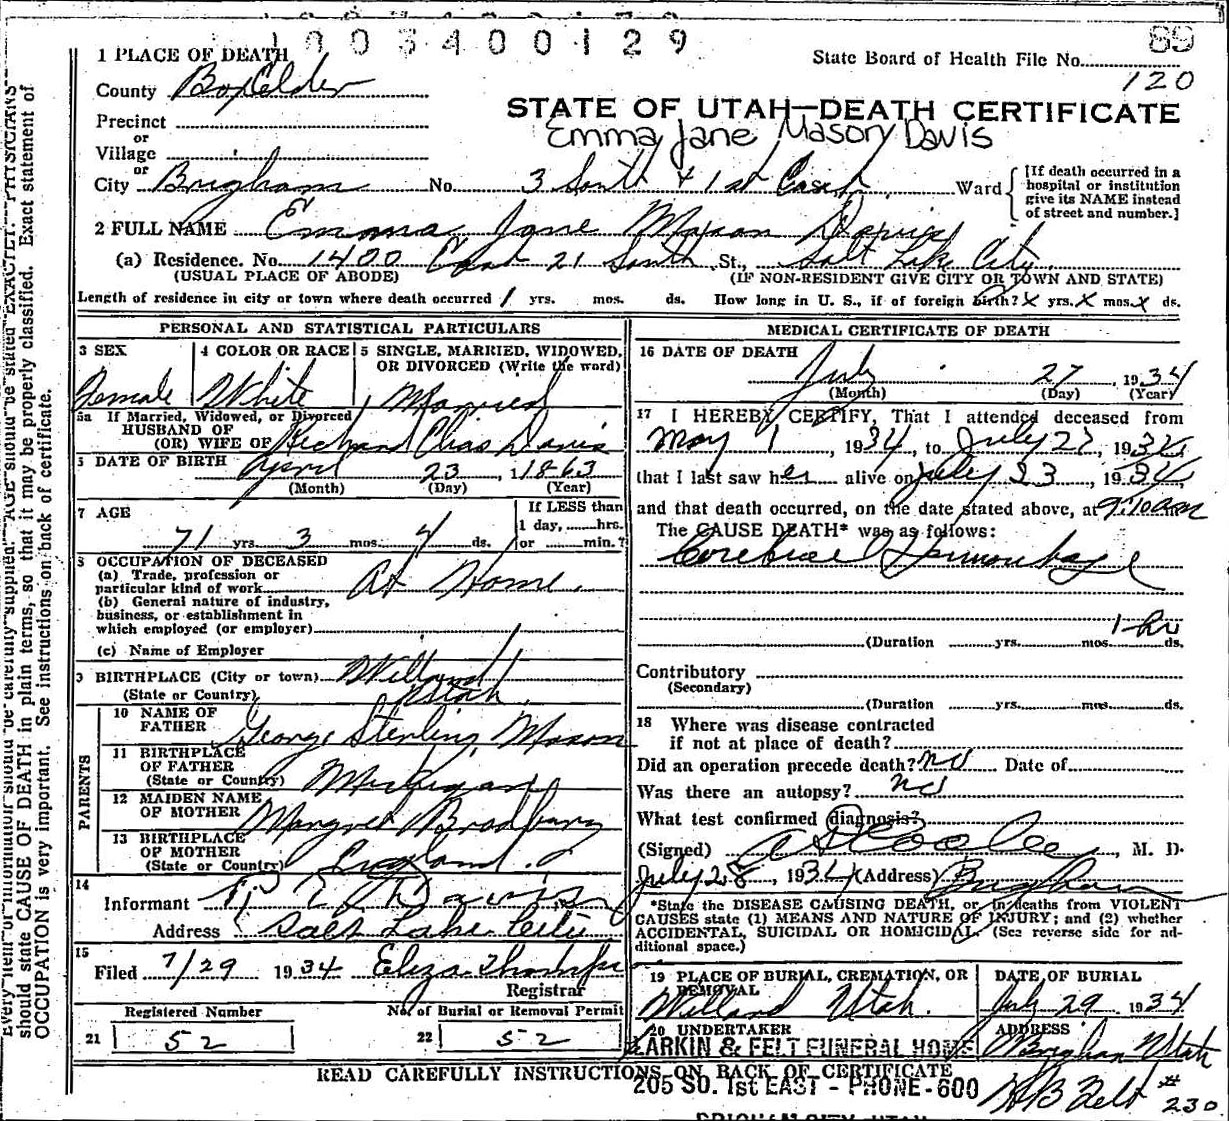 1003400129
89
1 PLACE OF DEATH
State Board of Health File No.
120
County Box Elder
STATE OF UTAH—DEATH CERTIFICATE
Precinct
or
Emma Jane Mason Davis
Village
or
City Brigham No. 3 South & 1st East Ward
[If death occurred in a
hospital or institution
give its NAME instead
of street and number.]
2 FULL NAME Emma Jane Mason Davis
(a) Residence. No. 1400 East 21 South St., Salt Lake City
(USUAL PLACE OF ABODE) (IF NON-RESIDENT GIVE CITY OR TOWN AND STATE)
Length of residence in city or town where death occurred 1 yrs. mos. ds. How long in U. S., if of foreign birth? X yrs. X mos. X ds.
PERSONAL AND STATISTICAL PARTICULARS
3 SEX
Female
4 COLOR OR RACE
White
5 SINGLE, MARRIED, WIDOWED,
OR DIVORCED (Write the word)
Married
5a If Married, Widowed, or Divorced
HUSBAND OF
(OR) WIFE OF Richard Chas Davis
DATE OF BIRTH April 23, 1863
(Month) (Day) (Year)
7 AGE
71 yrs. 3 mos. 4 ds.
If LESS than
1 day, hrs.
or min.?
OCCUPATION OF DECEASED
(a) Trade, profession or
particular kind of work At Home
(b) General nature of industry,
business, or establishment in
which employed (or employer)
(c) Name of Employer
9 BIRTHPLACE (City or town) Willard
(State or Country) Utah
PARENTS
10 NAME OF
FATHER George Sterling Mason
11 BIRTHPLACE
OF FATHER
(State or Country) Michigan
12 MAIDEN NAME
OF MOTHER Margret Bradbury
13 BIRTHPLACE
OF MOTHER
(State or Country) England
14
Informant Davis
Address Salt Lake City
15
Filed 7/29 1934 Eliza
Registrar
Registered Number
21 52
No. of Burial or Removal Permit
22 52
MEDICAL CERTIFICATE OF DEATH
16 DATE OF DEATH
July 27, 1934
(Month) (Day) (Year)
17 I HEREBY CERTIFY, That I attended deceased from
May 1, 1934, to July 27, 1934
that I last saw her alive on July 23, 1934,
and that death occurred, on the date stated above, at 9:10am
The CAUSE DEATH* was as follows:
Cerebral Hemorrhage
1 hr
(Duration yrs. mos. ds.
Contributory
(Secondary)
(Duration yrs. mos. ds.
18 Where was disease contracted
if not at place of death?
Did an operation precede death? no Date of
Was there an autopsy? no
What test confirmed diagnosis?
(Signed) , M. D.
July 28, 1934 (Address) Brigham
*State the DISEASE CAUSING DEATH, or, in deaths from VIOLENT
CAUSES state (1) MEANS AND NATURE OF INJURY; and (2) whether
ACCIDENTAL, SUICIDAL OR HOMICIDAL. (See reverse side for ad-
ditional space.)
19 PLACE OF BURIAL, CREMATION, OR
REMOVAL
Willard Utah.
DATE OF BURIAL
July 29 1934
20 UNDERTAKER
LARKIN & FELT FUNERAL HOME
ADDRESS
Brigham Utah
READ CAREFULLY INSTRUCTIONS ON BACK OF CERTIFICATE
205 SO. 1st EAST - PHONE-600
BRIGHAM CITY, UTAH
H B Felt # 230
Every item of information should be carefully supplied. AGE should be stated EXACTLY. PHYSICIANS
should state CAUSE OF DEATH in plain terms, so that it may be properly classified. Exact statement of
OCCUPATION is very important. See instructions on back of certificate.